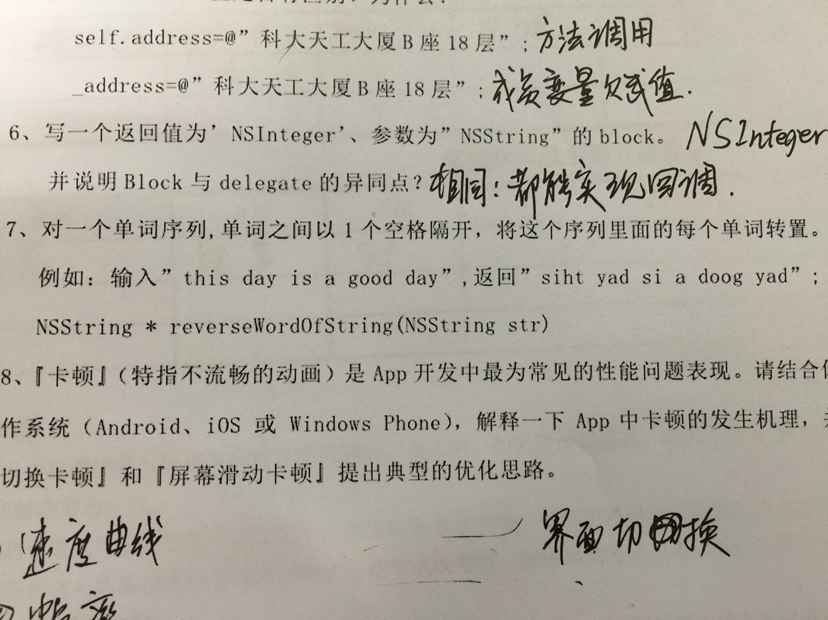 self.address=@"科大天工大厦B座18层"; 方法调用
_address=@"科大天工大厦B座18层"; 成员变量欠赋值.
6、写一个返回值为'NSInteger'、参数为"NSString"的block。 NSInteger
并说明Block与delegate的异同点? 相同:都能实现回调.
7、对一个单词序列,单词之间以1个空格隔开,将这个序列里面的每个单词转置。
例如:输入"this day is a good day",返回"siht yad si a doog yad";
NSString * reverseWordOfString(NSString str)
8、『卡顿』(特指不流畅的动画)是App开发中最为常见的性能问题表现。请结合
作系统(Android、iOS 或 Windows Phone),解释一下 App 中卡顿的发生机理,
切换卡顿』和『屏幕滑动卡顿』提出典型的优化思路。
速度曲线 界面切换